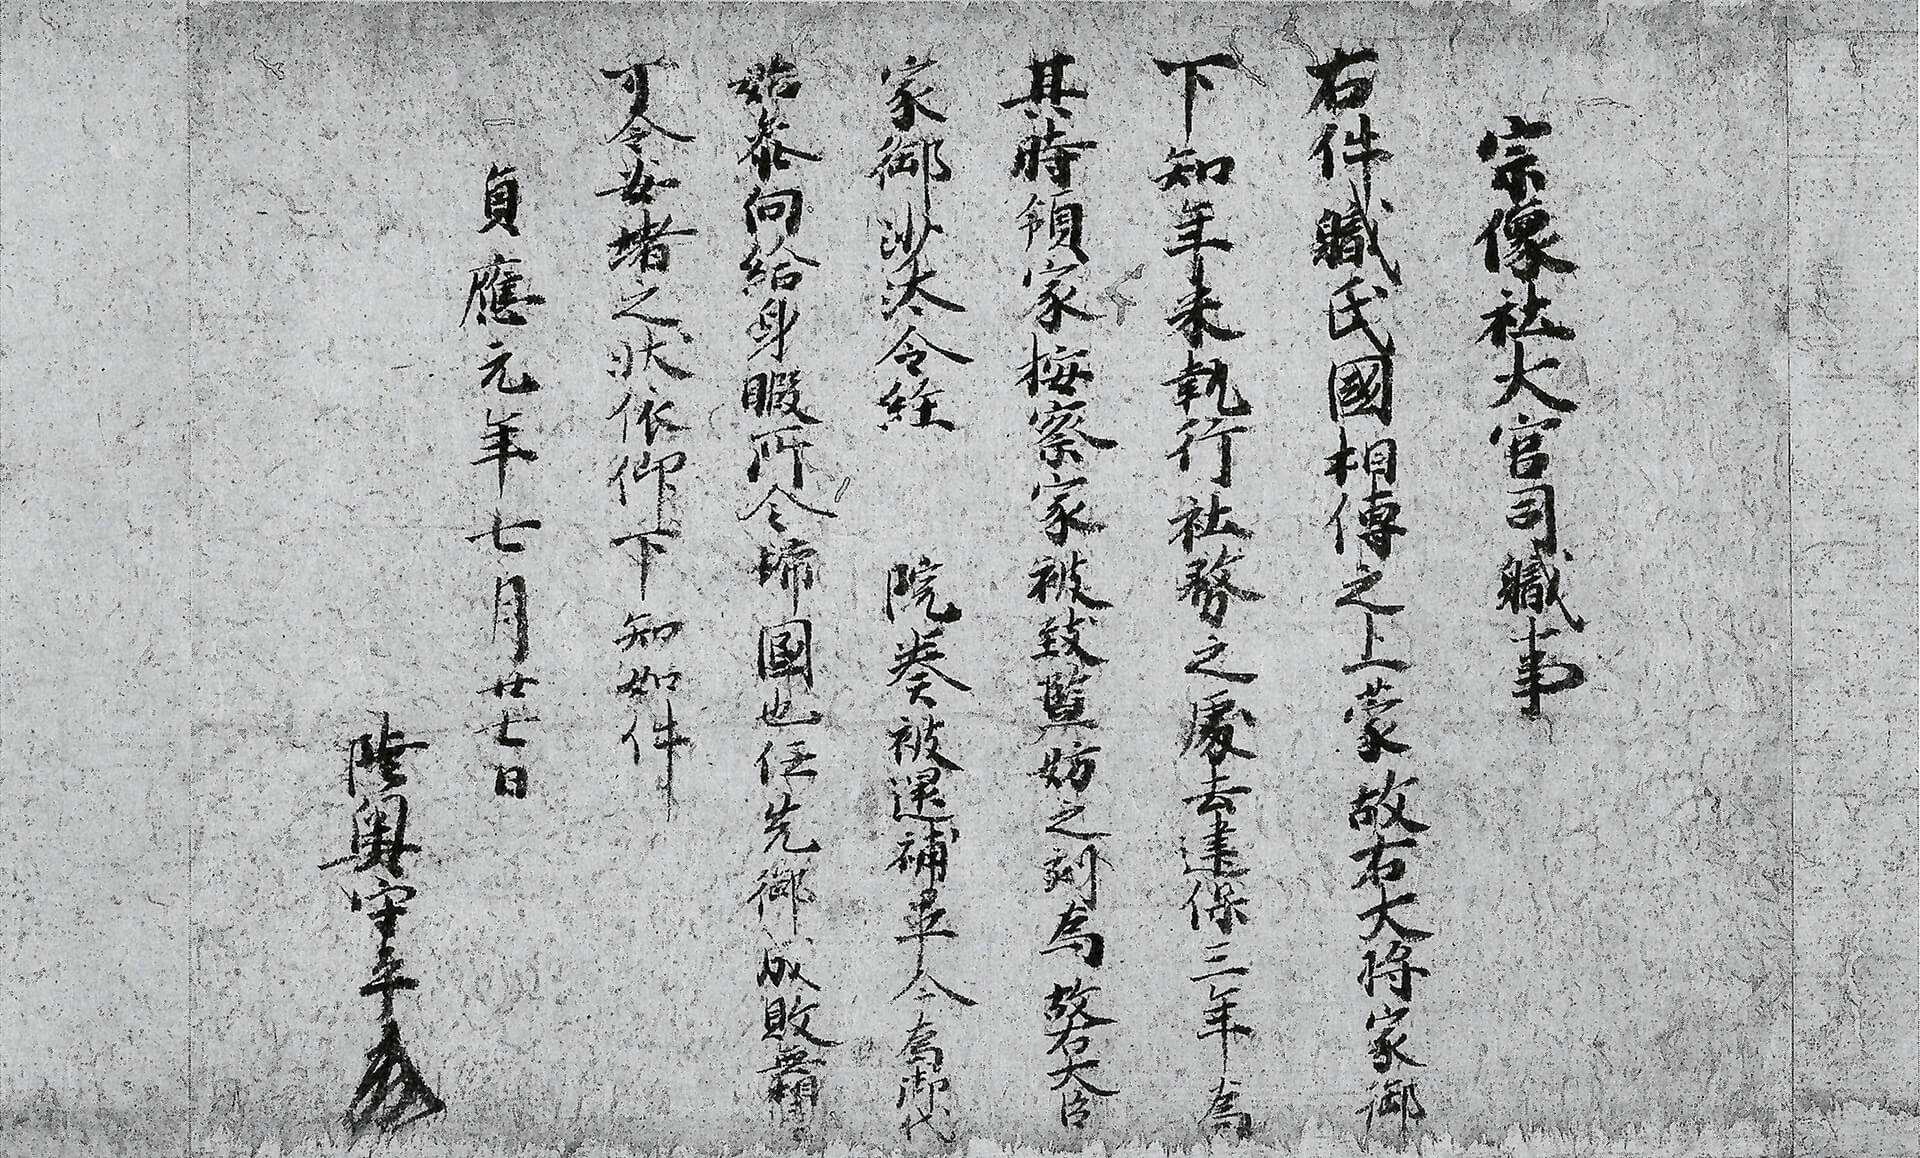 宗像社大官司職事
右件職氏國相傳之上蒙故右大将家御
下知年来執行社務之處去建保三年為
其時領家按察家被致監妨之刻為故右大臣
家御沙汰令経　院奏被還補畢今為御代
始参向給身暇所令歸國也任先御成敗無相
可令安堵之状依仰下知如件
貞應元年七月廿七日
陸奥守平